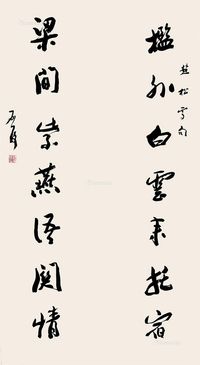 檻外白雲來託宿
梁間紫燕語關情